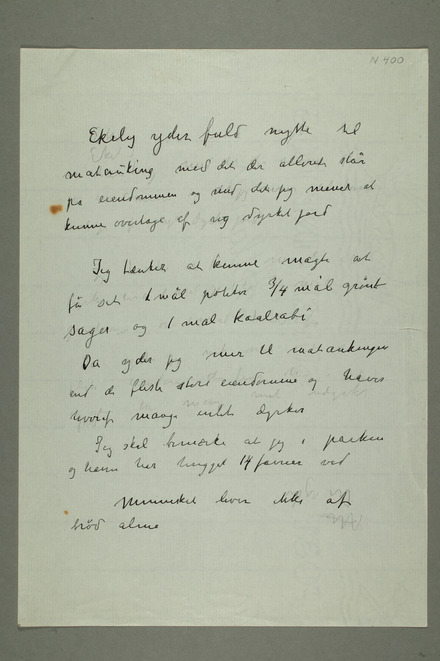 N 400
Ekely yder fuld nytte til
matauking med det der allerede står
på eiendommen og med det jeg mener at
kunne overtage af ny dyrket jord
Jeg tænker at kunne magte at
få sat 1 mål poteter 3/4 mål grönt
sager og 1 mål kaalrabi
Da yder jeg mer til mataukingen
end de fleste store eiendomme og haver
hvoraf mange intet dyrker
Jeg skal bemærke at jeg i parken
og haven har hugget 14 favner ved
Mennesket lever ikke af
bröd alene